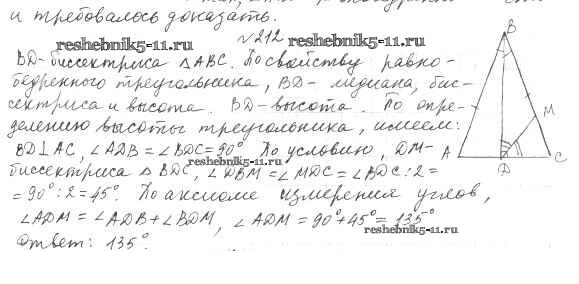 и требовалось доказать.
№212
reshebnik5-11.ru
BD-биссектриса △ABC. По свойству равно-
бедренного треугольника, BD- медиана, бис-
сектриса и высота. BD-высота. По опре-
делению высоты треугольника, имеем:
BD⊥AC, ∠ADB=∠BDC=90°. По условию, DM-
reshebnik5-11.ru
биссектриса △BDC, ∠DBM=∠MDC=∠BDC:2=
=90°:2=45°. По аксиоме измерения углов,
∠ADM=∠ADB+∠BDM, ∠ADM=90°+45°=135°
reshebnik5-11.ru
Ответ: 135°.
B
M
A
D
C